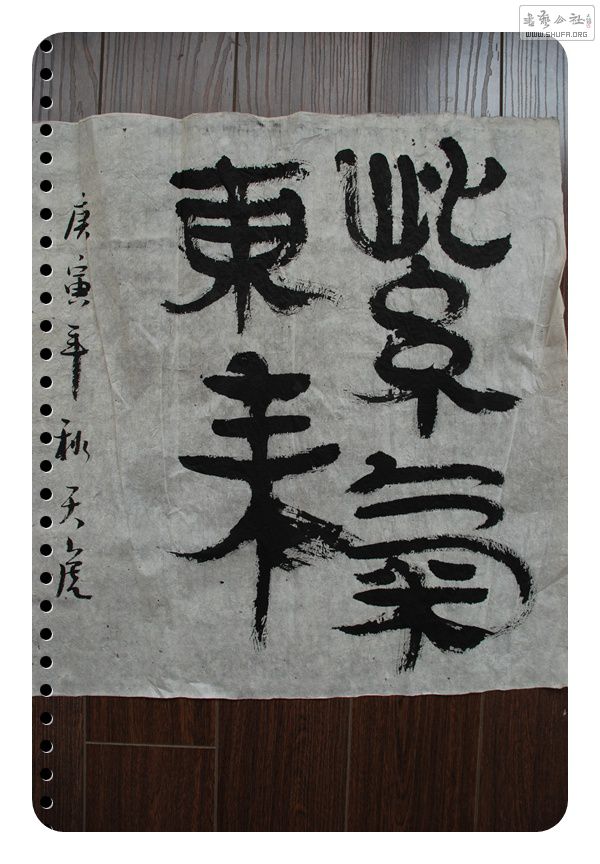 紫氣
東来
庚寅年秋天虎
書藝公社
WWW.SHUFA.ORG